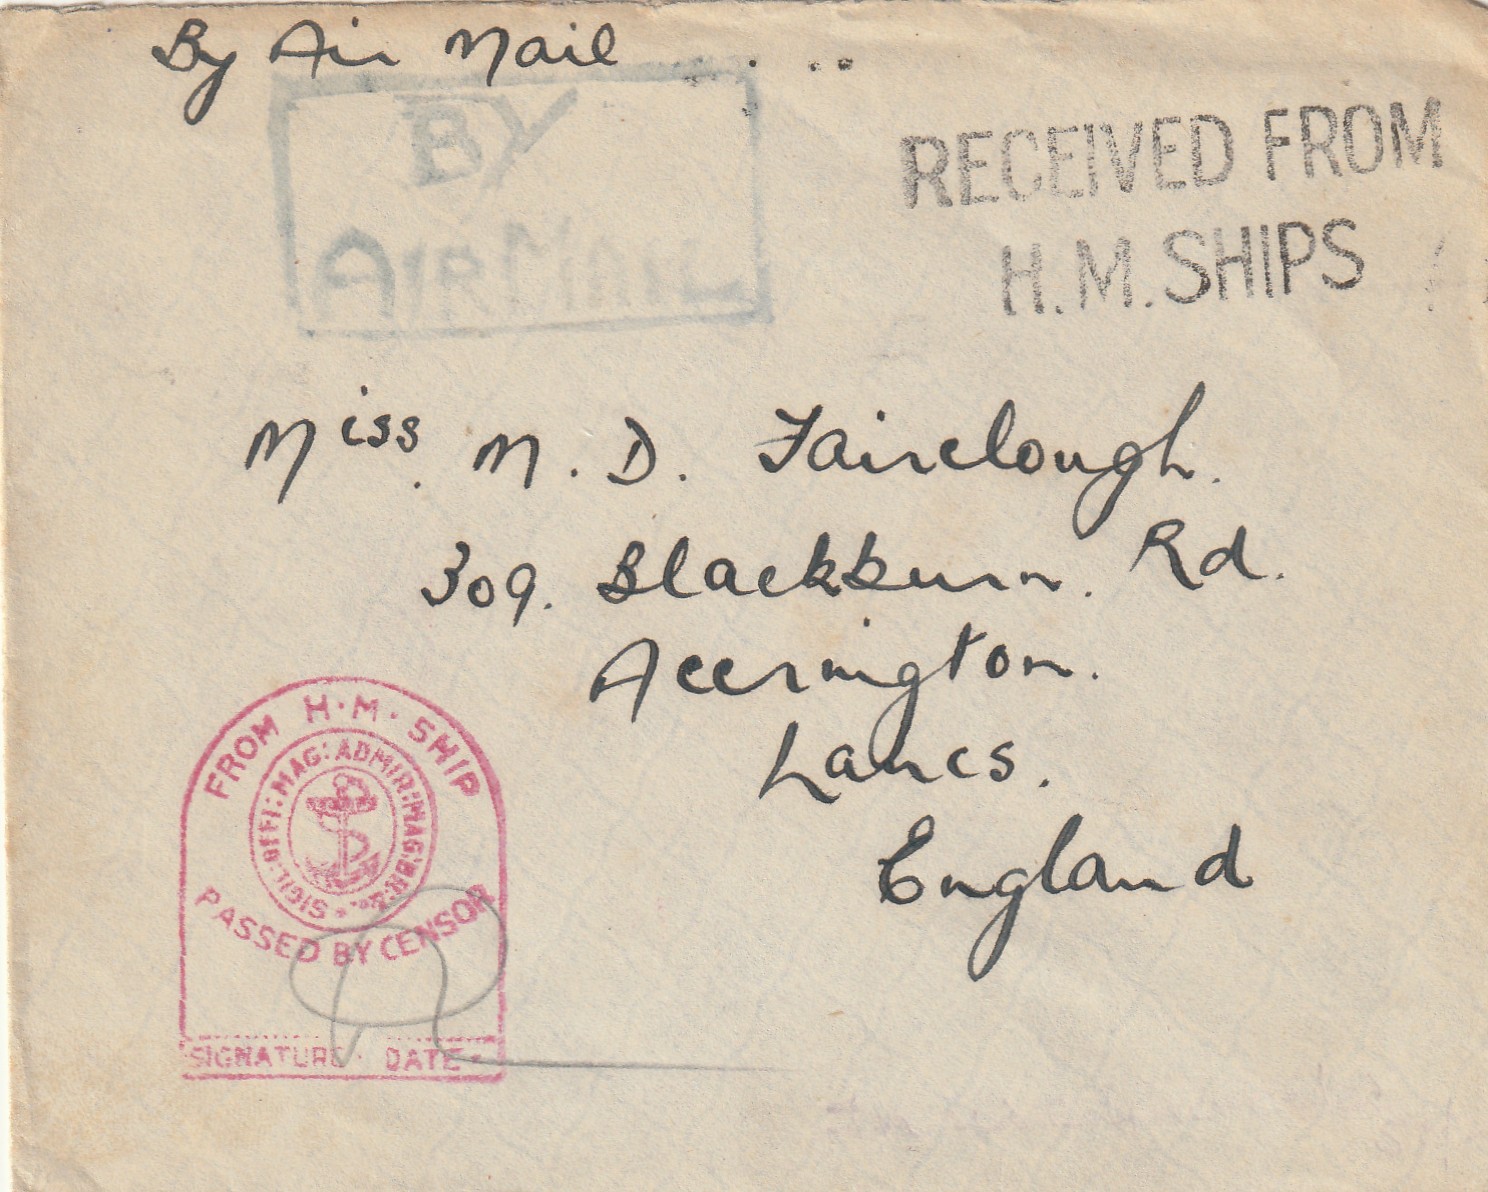 By Air Mail
BY
AIR MAIL
RECEIVED FROM
H.M.SHIPS
Miss. M. D. Fairclough.
309. Blackburn. Rd.
Accrington.
Lancs.
England
FROM H·M· SHIP
SIGIL:OFFI:MAG:ADMIR:MAG:BR:
PASSED BY CENSOR
SIGNATURE · DATE ·